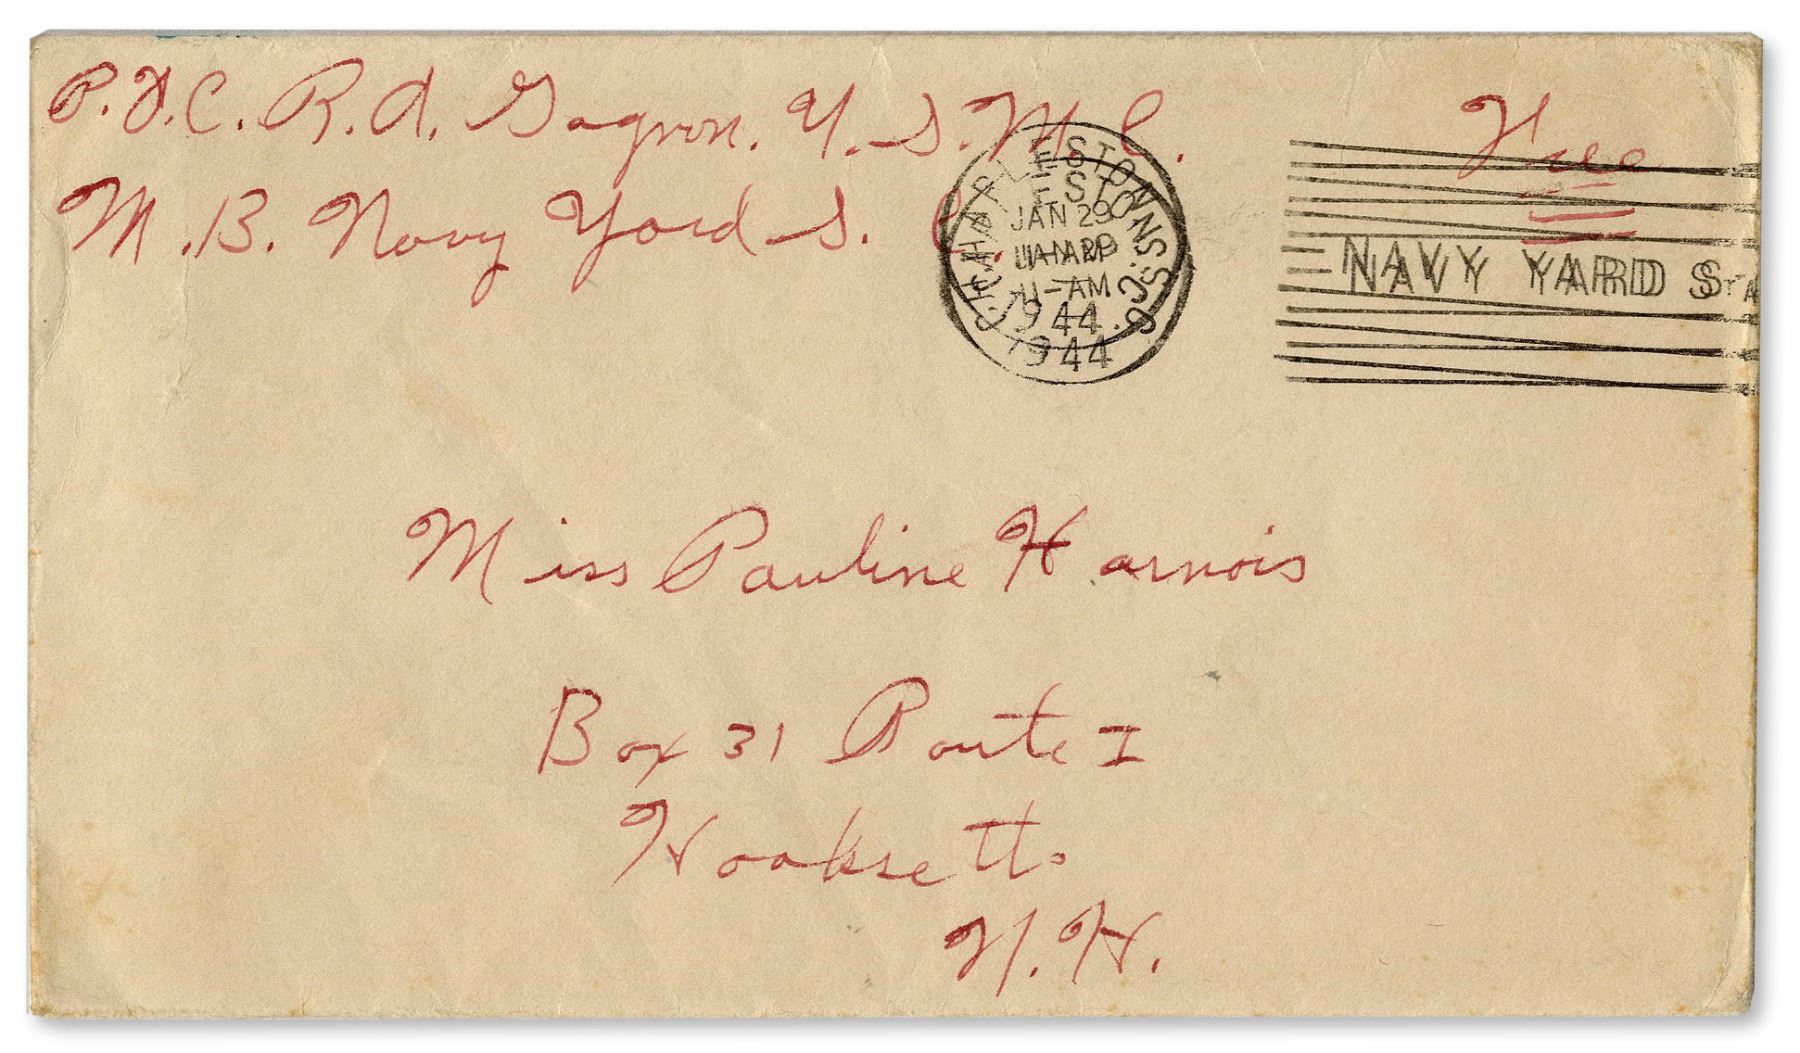 P.F.C. R.A. Gagnon. U.S.M.C.
M.B. Navy Yard S. C.
Free
CHARLESTON S.C.
EST
JAN 29
11-AM
1944
NAVY YARD STA
Miss Pauline Harnois
Box 31 Route I
Hooksett.
N.H.